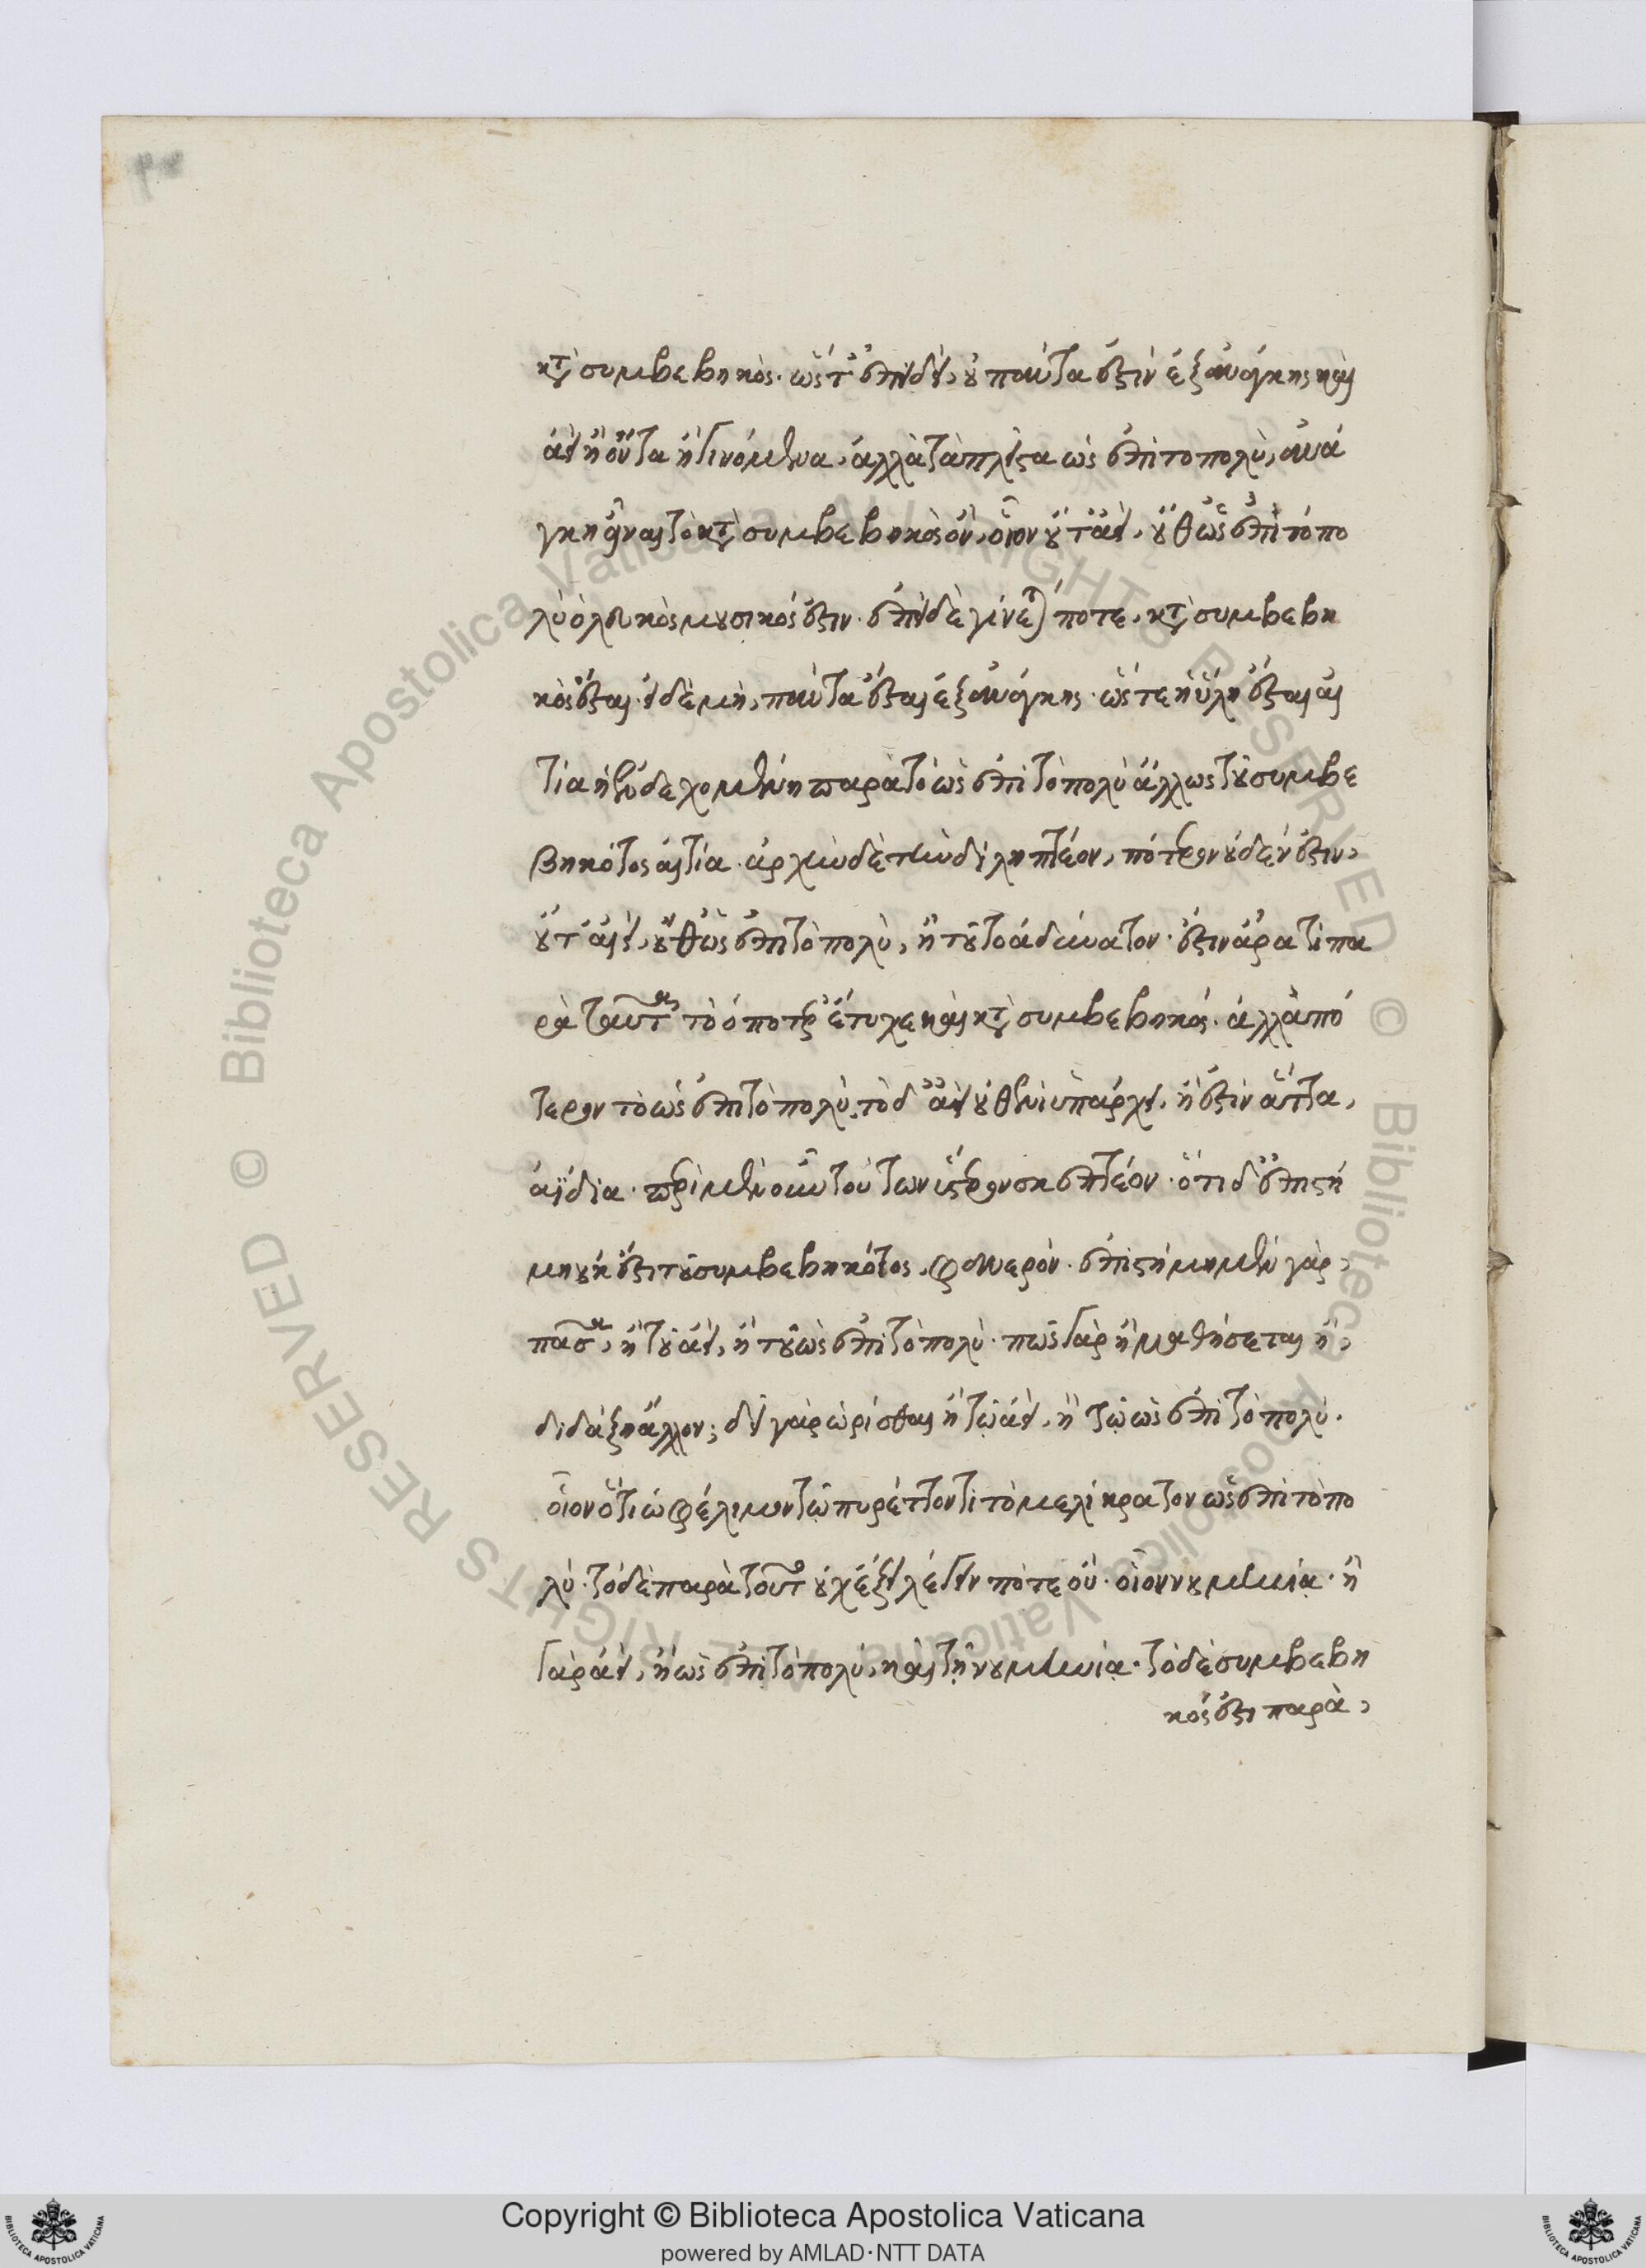 κατὰ συμβεβηκός. ὥστ' ἐπεὶ δεῖ, οὐ πάντα ἐστὶν ἐξ ἀνάγκης καὶ
ἀεὶ ἢ ὄντα ἢ γινόμενα, ἀλλὰ τὰ πλεῖστα ὡς ἐπὶ το πολὺ, ἀνά
γκη εἶναι τὸ κατὰ συμβεβηκὸς ὄν, οἷον οὔτ' ἀεὶ, οὔθ' ὡς ἐπὶ τό πο
λὺ ὁ λευκὸς μουσικός ἐστιν. ἐπεὶ δὲ γίνεταί ποτε, κατὰ συμβεβη
κὸς ἔσται. εἰ δὲ μὴ, πάντα ἔσται ἐξ ἀνάγκης. ὥς τε ἡ ὕλη ἔσται αἰ
τία ἡ ἐνδεχομένη παρὰ τὸ ὡς ἐπὶ τὸ πολὺ ἄλλως τοῦ συμβε
βηκότος αἰτία. ἀρχὴν δὲ τηνδὶ ληπτέον, πότερον οὐδέν ἐστιν,
οὔτ' αἰεὶ, οὔθ' ὡς ἐπὶ τὸ πολὺ, ἢ τοῦτο ἀδύνατον. ἔστιν ἄρα τὶ πα
ρὰ ταῦτα τὸ ὁπότερ' ἔτυχε καὶ κατὰ συμβεβηκός. ἀλλὰ πό
τερον τὸ ὡς ἐπὶ τὸ πολὺ, τὸ δ' ἀεὶ οὐθενὶ ὑπάρχει, ἢ ἐστὶν ἄττα,
ἀΐδια. περὶ μὲν οὖν τούτων ὕστερον σκεπτέον. ὅτι δ' ἐπιστή
μη οὐκ ἔστι τοῦ συμβεβηκότος, φανερόν. ἐπιστήμη μὲν γὰρ,
πᾶσα, ἢ τοῦ ἀεὶ, ἢ τοῦ ὡς ἐπὶ τὸ πολύ. πῶς γὰρ ἢ μαθήσεται ἢ,
διδάξη ἄλλον; δεῖ γὰρ ὡρίσθαι ἢ τῷ ἀεὶ, ἢ τῷ ὡς ἐπὶ τὸ πολύ.
οἷον ὅτι ὠφέλιμον τῷ πυρέττοντι τὸ μελίκρατον ὡς ἐπὶ τὸ πο
λύ. τὸ δὲ παρὰ τοῦτο οὐχ ἕξει λέγειν πότε οὔ. οἷον νουμηνίᾳ. ἢ
γὰρ ἀεὶ, ἢ ὡς ἐπὶ τὸ πολὺ, καὶ τῇ νουμηνίᾳ. τὸ δὲ συμβεβη
κός ἐστι παρὰ,
Copyright © Biblioteca Apostolica Vaticana
powered by AMLAD·NTT DATA